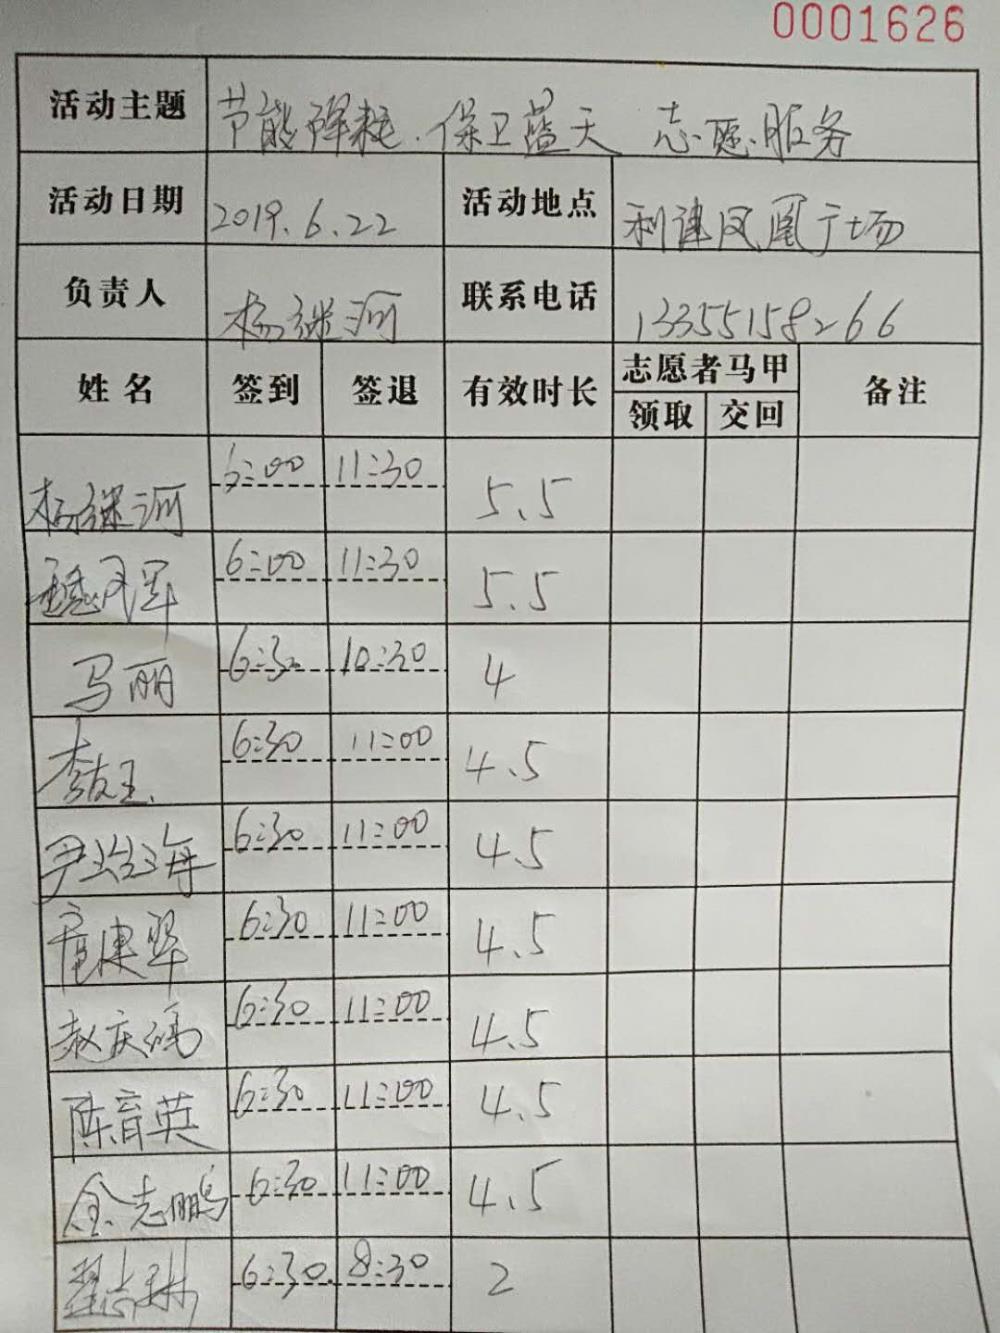 0001626
活动主题 节能降耗.保卫蓝天 志愿服务
活动日期 2019.6.22 活动地点 利津凤凰广场
负责人 杨继河 联系电话 13355158266
姓名 签到 签退 有效时长 志愿者马甲 备注
领取 交回
杨继河 6:00 11:30 5.5
6:00 11:30 5.5
马丽 6:30 10:30 4
李友玉 6:30 11:00 4.5
尹治海 6:30 11:00 4.5
6:30 11:00 4.5
赵庆鸿 6:30 11:00 4.5
陈育英 6:30 11:00 4.5
金志鹏 6:30 11:00 4.5
6:30 8:30 2